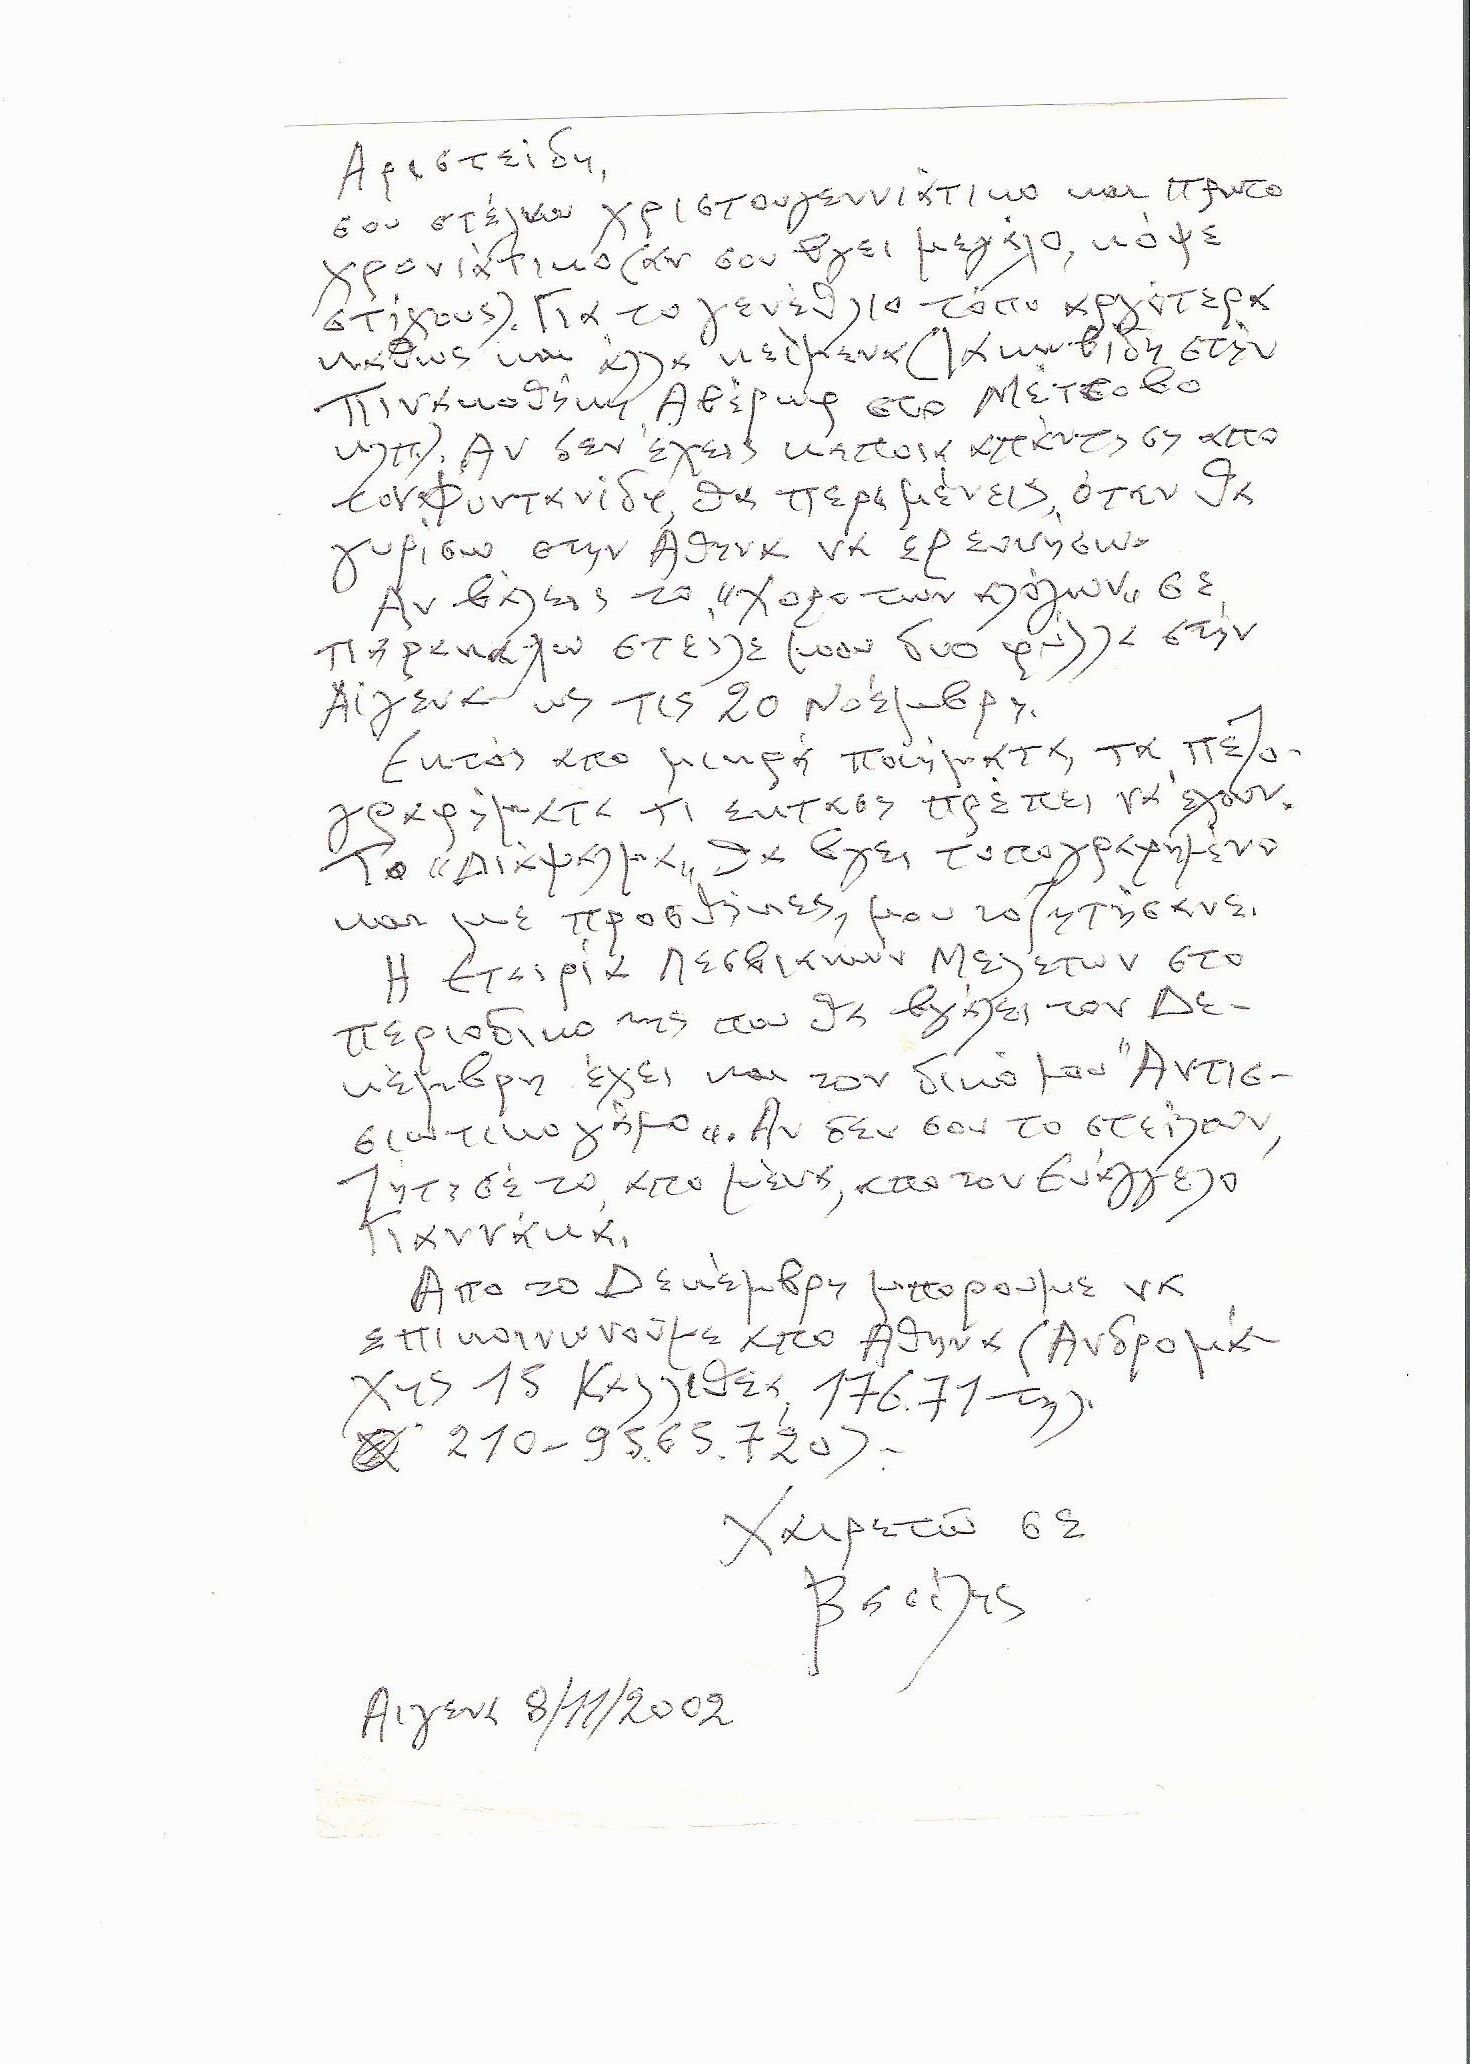 Αριστείδη,
σου στέλνω χριστουγεννιάτικο και πρωτο
χρονιάτικο (αν σου βγει μεγάλο, κόψε
στίχους). Για το γενέθλιο τόπο αργότερα
καθώς και άλλα κείμενα (Ιακωβίδη στην
Πινακοθήκη Αβέρωφ στο Μέτσοβο
κλπ). Αν δεν έχεις κάποια απάντηση απο
τον Φουντανίδη, θα περιμένεις, όταν θα
γυρίσω στην Αθήνα να ερευνήσω.
Αν βάλεις το "Χορο των αλόγων" σε
παρακαλω στείλε μου δυο φύλλα στην
Αίγενα ως τις 20 Νοέμβρη.
Εκτός απο μικρά ποιήματα, τα πεζο-
γραφήματα τι εκταση πρέπει να έχουν.
Το "Διάψαλμα" θα βγει τυπογραφημένο
και με προσθήκες, μου το ζητήσανε.
Η Εταιρία Λεσβιακών Μελετων στο
περιοδικο της που θα βγάλει τον Δε-
κέμβρη έχει και τον δικό μου "Αντισ-
σιωτικο γάμο". Αν δεν σου το στείλουν,
ζήτησέ το απο μένα, απο τον Ευάγγελο
Γιαννάκά.
Απο το Δεκέμβρη μπορουμε να
επικοινωνούμε απο Αθηνα (Ανδρομά-
χης 15 Καλλιθέα, 176.71 - τηλ.
210-95.65.720).-
Χαιρετώ σε
Βασίλης
Αιγενα 8/11/2002